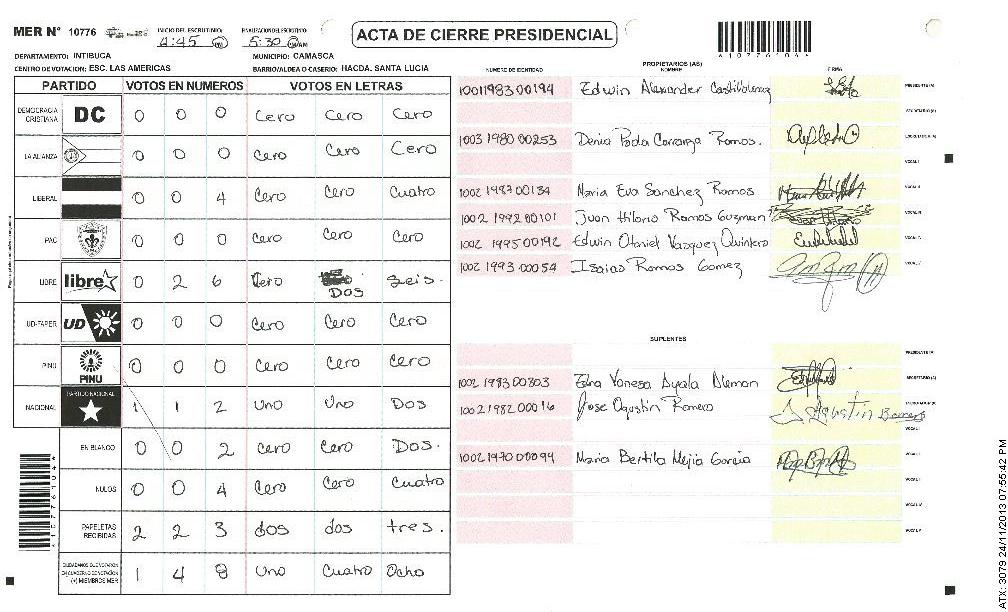 MER N° 10776 INICIO DEL ESCRUTINIO: 4:45 PM FINALIZACION DEL ESCRUTINIO: 5:30 AM ACTA DE CIERRE PRESIDENCIAL
*10776104*
DEPARTAMENTO: INTIBUCA MUNICIPIO: CAMASCA
CENTRO DE VOTACION: ESC. LAS AMERICAS BARRIO/ALDEA O CASERIO: HACDA. SANTA LUCIA
PARTIDO VOTOS EN NUMEROS VOTOS EN LETRAS
DEMOCRACIA CRISTIANA DC 0 0 0 Cero Cero Cero
LA ALIANZA 0 0 0 Cero Cero Cero
LIBERAL 0 0 4 Cero Cero Cuatro
PAC 0 0 0 Cero Cero Cero
LIBRE libre 0 2 6 Cero DOS Seis.
UD-FAPER UD 0 0 0 Cero Cero Cero
PINU PINU 0 0 0 Cero Cero Cero
NACIONAL PARTIDO NACIONAL 1 1 2 Uno Uno Dos
EN BLANCO 0 0 2 Cero Cero Dos.
NULOS 0 0 4 Cero Cero Cuatro
PAPELETAS RECIBIDAS 2 2 3 dos dos tres.
CIUDADANOS QUE VOTARON EN CUADERNO DE VOTACION (+) MIEMBROS MER 1 4 8 Uno Cuatro Ocho
*10776104*
PROPIETARIOS (AS)
NUMERO DE IDENTIDAD NOMBRE FIRMA
1001198300194 Edwin Alexander PRESIDENTE (A)
SECRETARIO (A)
1003 1980 00253 Ramos.
VOCAL I
1002 1987 00134 Maria Eva Sanchez Ramos
1002 1992 00101 Juan Hilario Ramos Guzman
1002 1995 00192 Edwin Otoniel Vasquez Quintero
1002 1993 00054 Isaias Ramos Gomez
SUPLENTES
PRESIDENTE (A)
1002 1983 00303 Vanesa Ayala Aleman SECRETARIO (A)
1002 1982 00016 Jose Agustin Romero Agustin Romero
1002 1970 00094 Maria Bertila Mejia Garcia
ATX: 3079 24/11/2013 07:55:42 PM